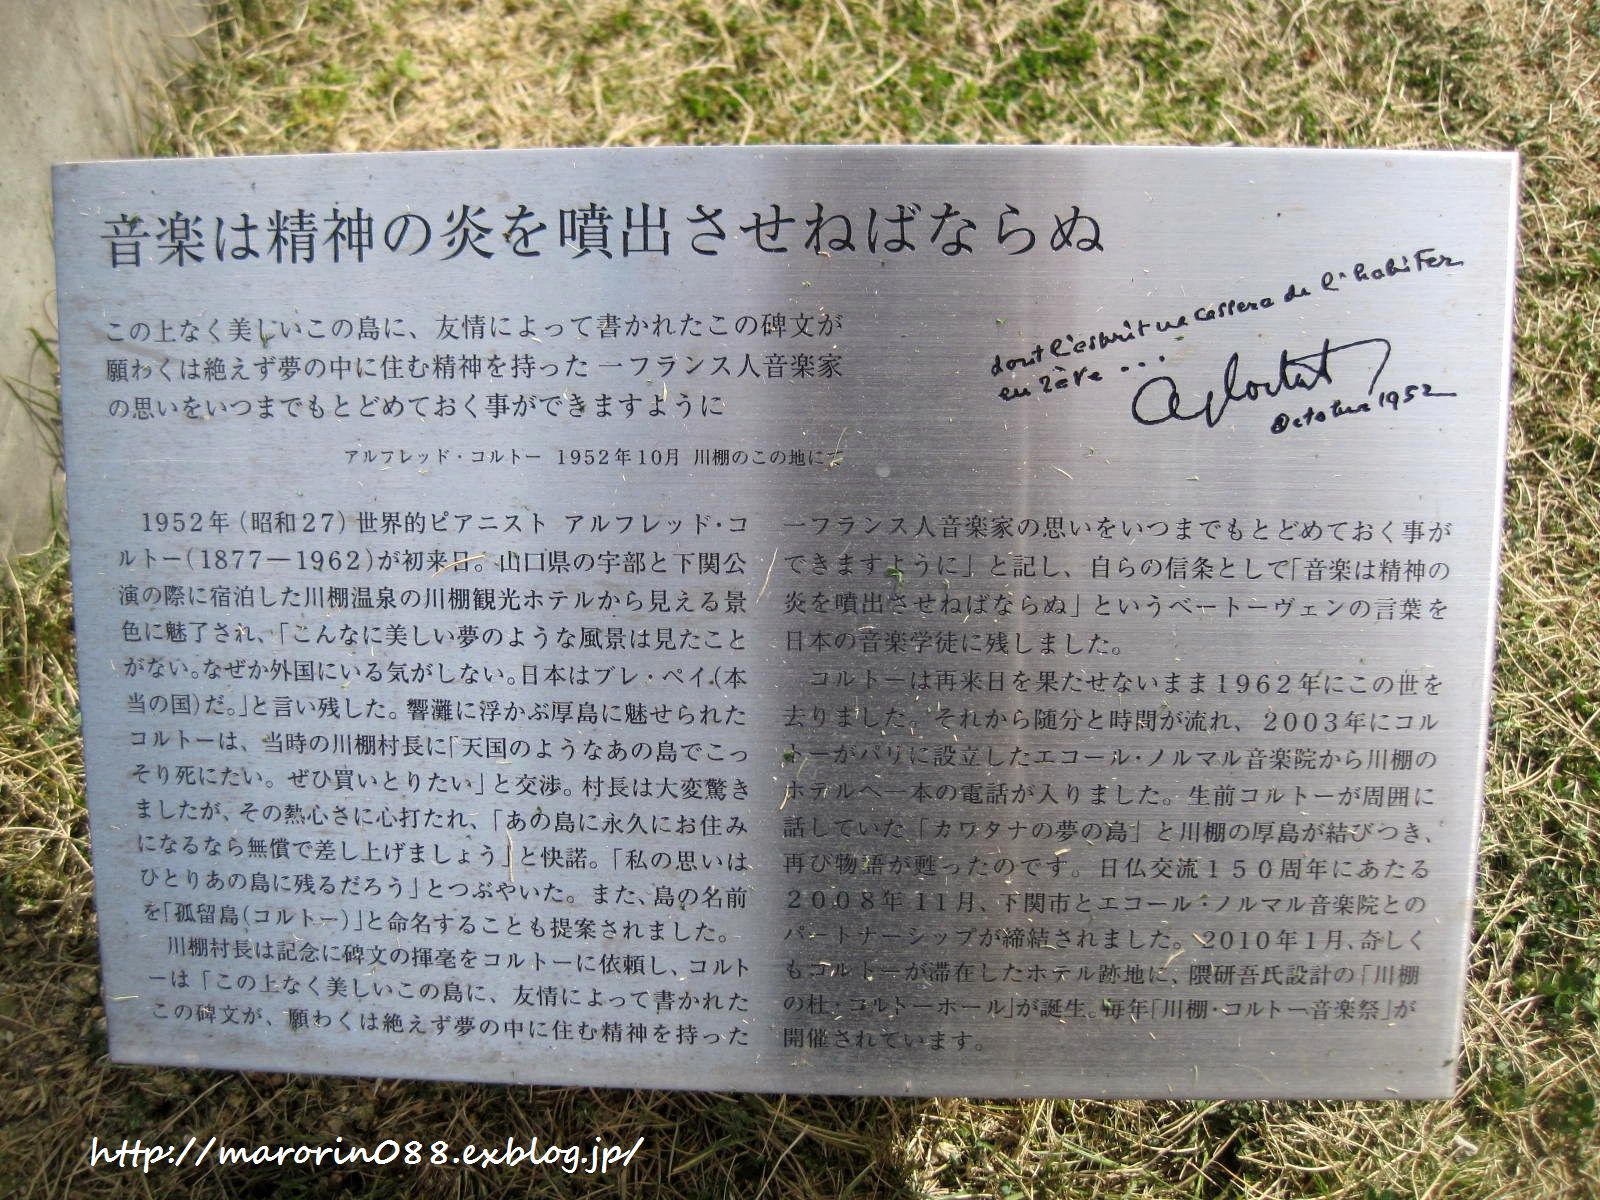 音楽は精神の炎を噴出させねばならぬ
この上なく美しいこの島に、友情によって書かれたこの碑文が
願わくは絶えず夢の中に住む精神を持った一フランス人音楽家
の思いをいつまでもとどめておく事ができますように
アルフレッド・コルトー 1952年10月 川棚のこの地にて
dont l'esprit ne cessera de l'habiter
en rêve...
October 1952
1952年(昭和27)世界的ピアニスト アルフレッド・コ
ルトー(1877－1962)が初来日。山口県の宇部と下関公
演の際に宿泊した川棚温泉の川棚観光ホテルから見える景
色に魅了され、「こんなに美しい夢のような風景は見たこと
がない。なぜか外国にいる気がしない。日本はブレ・ペイ(本
当の国)だ。」と言い残した。響灘に浮かぶ厚島に魅せられた
コルトーは、当時の川棚村長に「天国のようなあの島でこっ
そり死にたい。ぜひ買いとりたい」と交渉。村長は大変驚き
ましたが、その熱心さに心打たれ、「あの島に永久にお住み
になるなら無償で差し上げましょう」と快諾。「私の思いは
ひとりあの島に残るだろう」とつぶやいた。また、島の名前
を「孤留島(コルトー)」と命名することも提案されました。
川棚村長は記念に碑文の揮毫をコルトーに依頼し、コルト
ーは「この上なく美しいこの島に、友情によって書かれた
この碑文が、願わくは絶えず夢の中に住む精神を持った
一フランス人音楽家の思いをいつまでもとどめておく事が
できますように」と記し、自らの信条として「音楽は精神の
炎を噴出させねばならぬ」というベートーヴェンの言葉を
日本の音楽学徒に残しました。
コルトーは再来日を果たせないまま1962年にこの世を
去りました。それから随分と時間が流れ、2003年にコル
トーがパリに設立したエコール・ノルマル音楽院から川棚の
ホテルへ一本の電話が入りました。生前コルトーが周囲に
話していた「カワタナの夢の島」と川棚の厚島が結びつき、
再び物語が甦ったのです。日仏交流150周年にあたる
2008年11月、下関市とエコール・ノルマル音楽院との
パートナーシップが締結されました。2010年1月、奇しく
もコルトーが滞在したホテル跡地に、隈研吾氏設計の「川棚
の杜・コルトーホール」が誕生。毎年「川棚・コルトー音楽祭」が
開催されています。
http://marorin088.exblog.jp/